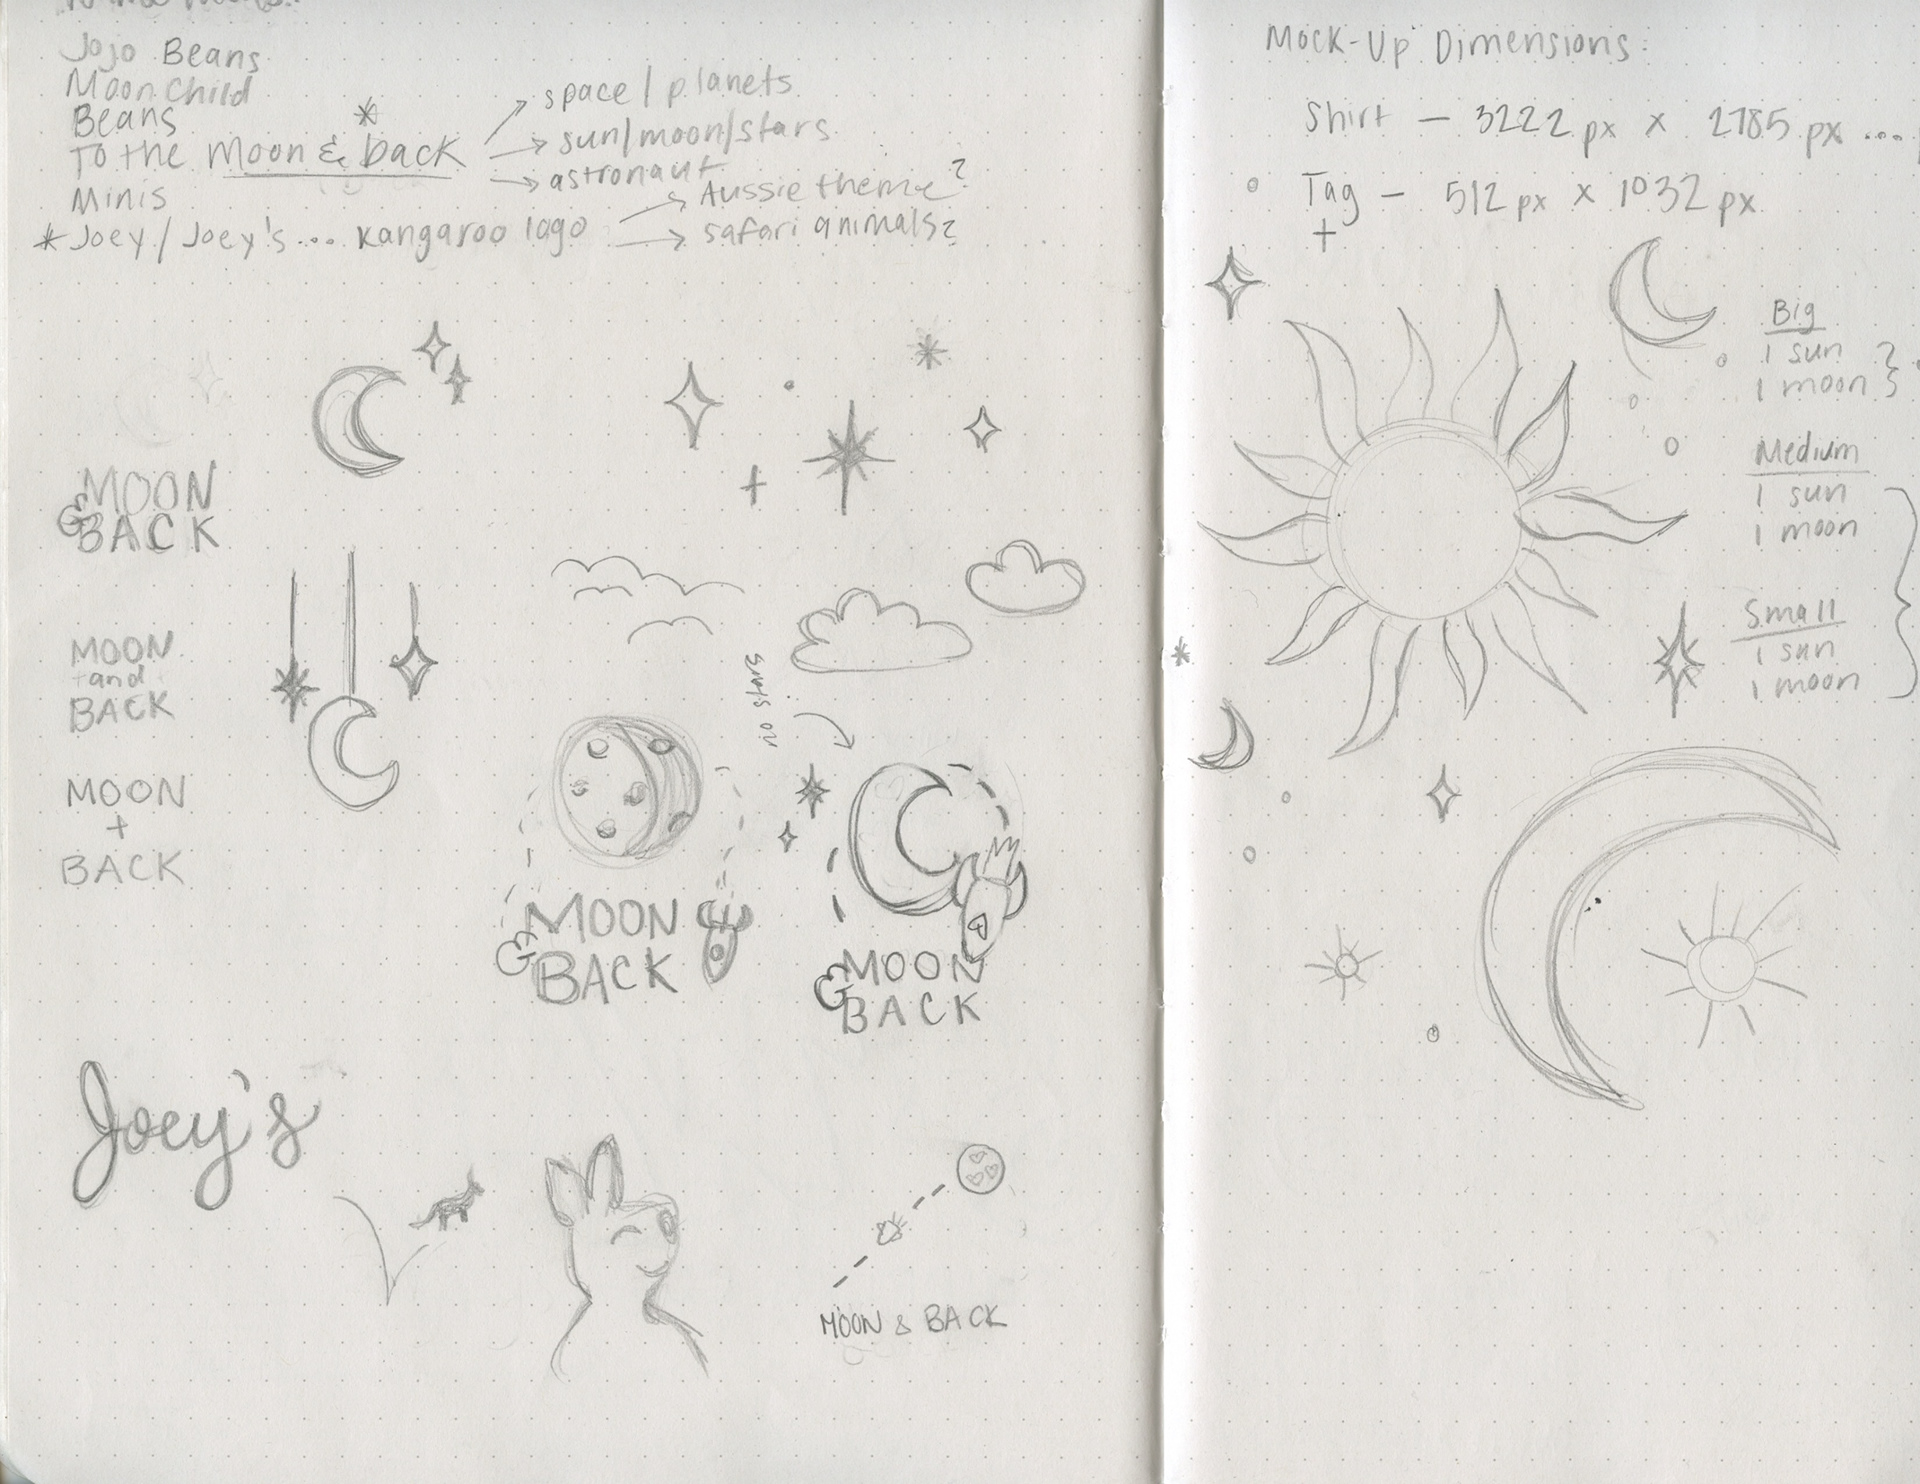 Jojo Beans
Moon Child
Beans
*
To the Moon & back
space / planets
sun/moon/stars
astronaut
Minis
*Joey / Joey's... kangaroo logo
Aussie theme?
safari animals?
MOON
& BACK
MOON
and
BACK
MOON
+
BACK
no stars
MOON
& BACK
MOON
& BACK
Joey's
MOON & BACK
Mock-Up Dimensions:
Shirt — 3222 px x 2785 px ...
Tag — 512 px x 1032 px
Big
1 sun
1 moon
Medium
1 sun
1 moon
Small
1 sun
1 moon